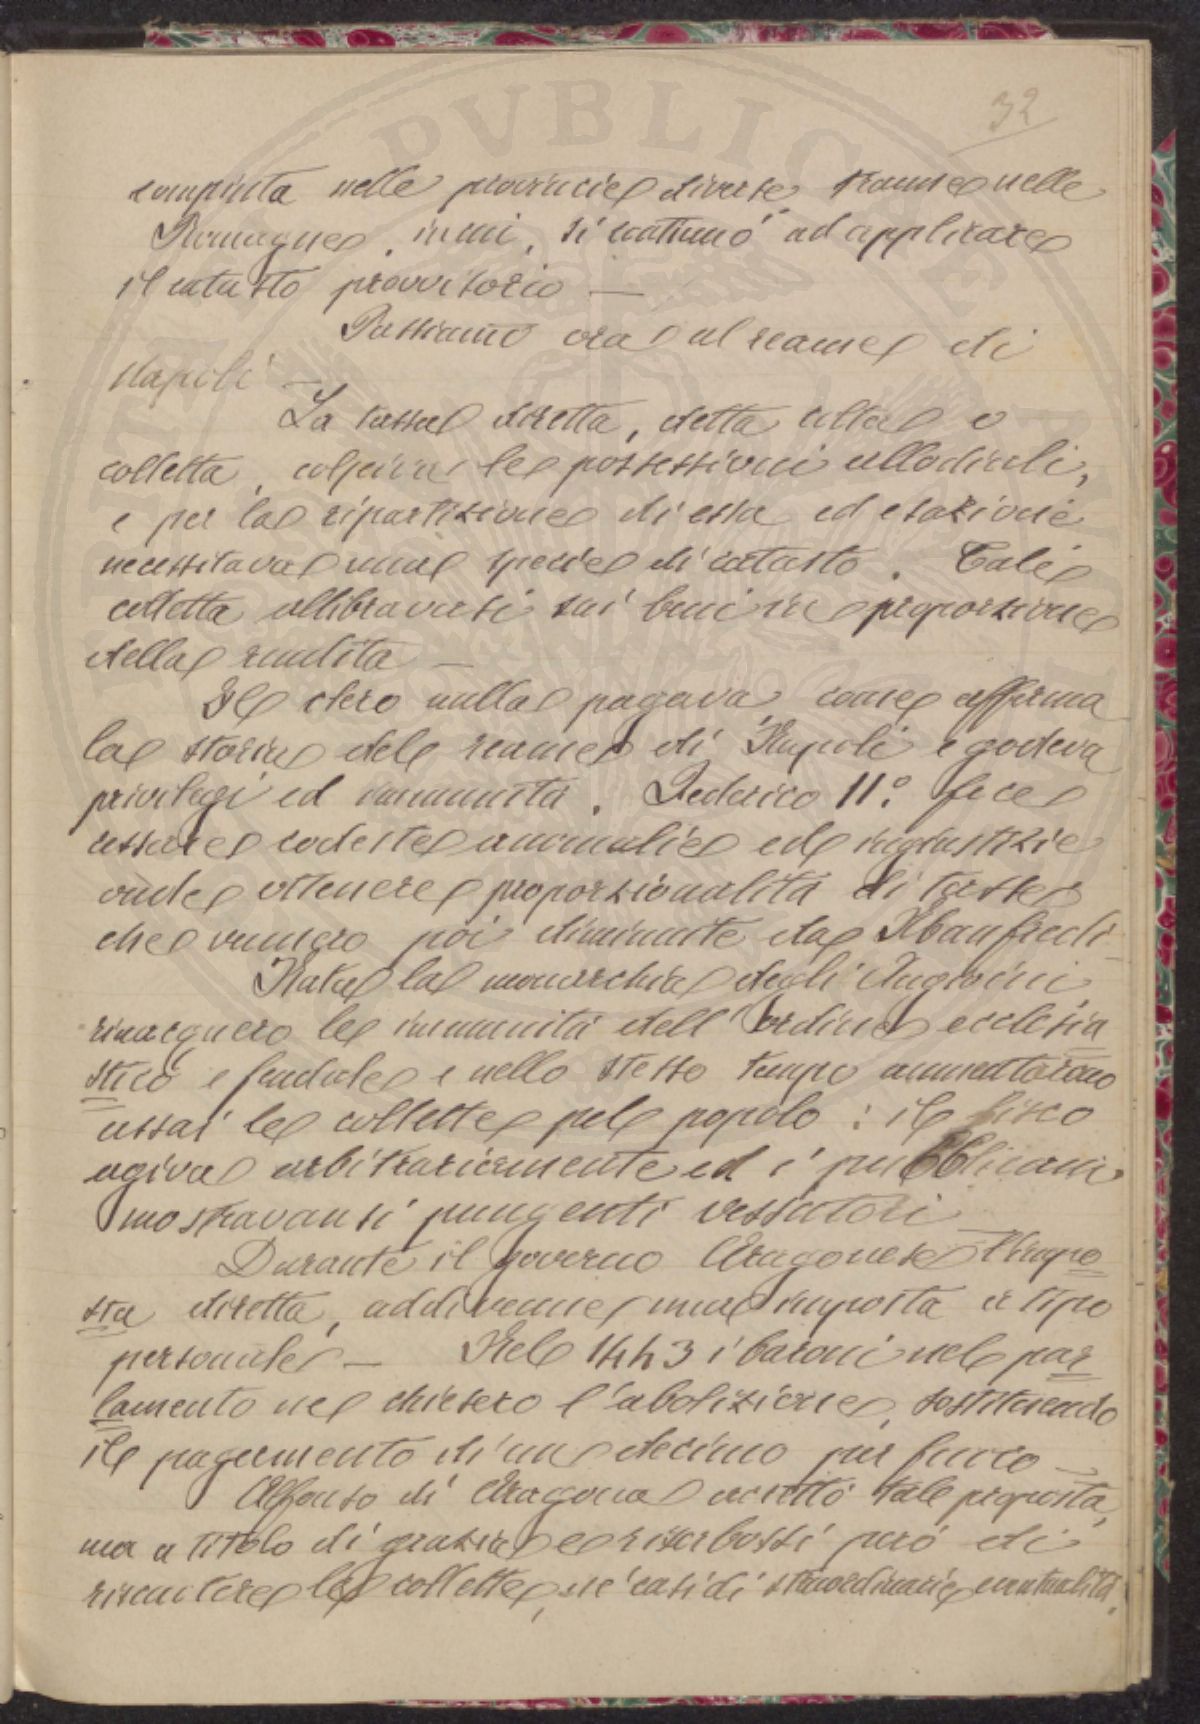 32
compiuta nelle provincie diverse, tranne nelle
Romagne, in cui, si continuò ad applicare
il catasto provvisorio —
Passiamo ora al reame di
Napoli —
La tassa diretta, detta colta o
colletta, colpiva le possessioni allodiali,
e per la ripartizione di essa ed esazione
necessitava una specie di catasto. Tale
colletta allibravasi sui beni in proporzione
della rendita —
Il clero nulla pagava, come afferma
la storia del reame di Napoli e godeva
privilegi ed immunità. Federico II.° fece
cessare codeste anomalie ed ingiustizie
onde ottenere proporzionalità di tasse
che vennero poi diminuite da Manfredi
Nata la monarchia degli Angioini
rinacquero le immunità dell'ordine ecclesia
stico e feudale e nello stesso tempo aumentarono
assai le collette pel popolo: il fisco
agiva arbitrariamente ed i pubblicani
mostravansi pungenti vessatori —
Durante il governo Aragonese l'impo
sta diretta, addivenne una imposta a tipo
personale — Nel 1443 i baroni nel par
lamento ne chiesero l'abolizione, sostituendo
il pagamento di un decimo per fuoco —
Alfonso di Aragona accettò tale proposta,
ma a titolo di grazia e riserbossi però di
riscuotere le collette, ne' casi di straordinarie eventualità,